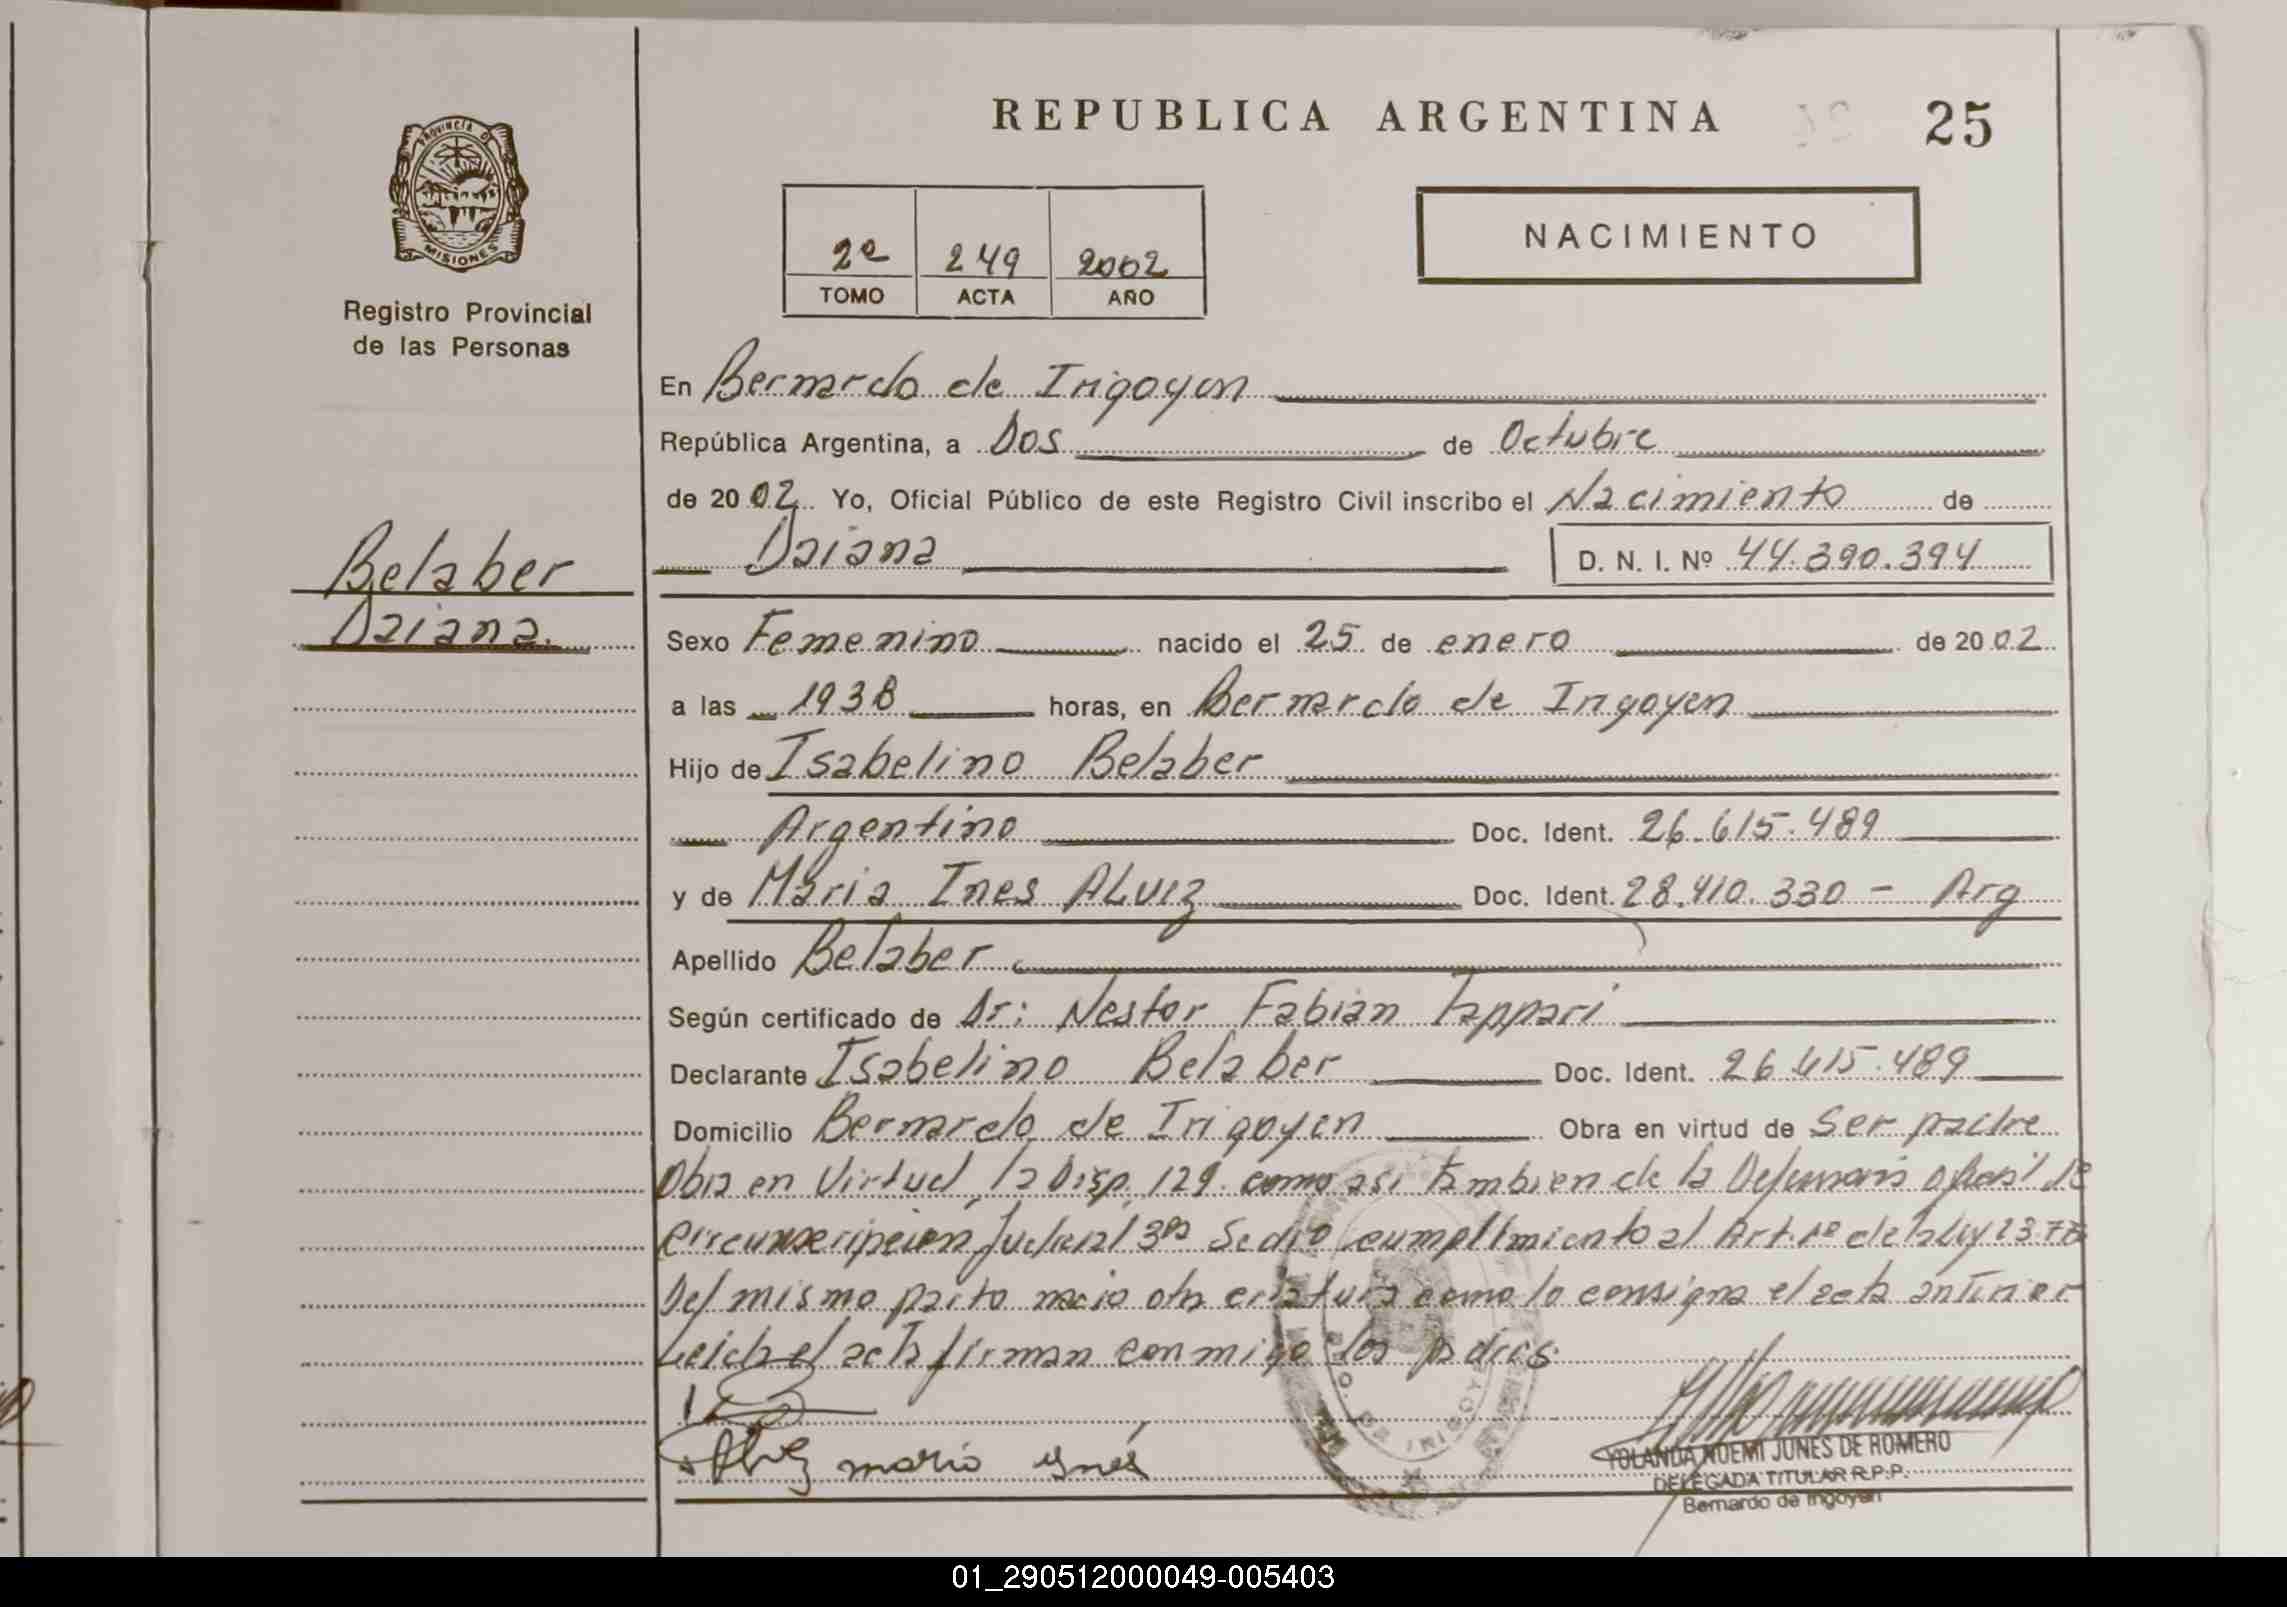 REPUBLICA ARGENTINA
25
PROVINCIA DE
MISIONES
Registro Provincial
de las Personas
2º 249 2002
TOMO ACTA AÑO
NACIMIENTO
En Bernardo de Irigoyen
República Argentina, a Dos de Octubre
de 2002 Yo, Oficial Público de este Registro Civil inscribo el Nacimiento de
Daiana D. N. I. Nº 44.390.394
Belaber
Daiana
Sexo Femenino nacido el 25 de enero de 2002
a las 1938 horas, en Bernardo de Irigoyen
Hijo de Isabelino Belaber
Argentino Doc. Ident. 26.615.489
y de Maria Ines ALviz Doc. Ident. 28.410.330 - Arg
Apellido Belaber
Según certificado de Dr: Nestor Fabian Tappari
Declarante Isabelino Belaber Doc. Ident. 26.615.489
Domicilio Bernardo de Irigoyen Obra en virtud de Ser padre
Obra en Virtud la Disp. 129. como asi tambien de la
circunscripcion Judicial 3ra Se dio cumplimiento al Art. 1º de la ley
Del mismo parto nacio otra criatura como lo consigna el acta anterior
Leida el acta firman conmigo los padres.
Alviz maria ynés
YOLANDA NOEMI JUNES DE ROMERO
DELEGADA TITULAR R.P.P.
Bernardo de Irigoyen
01_290512000049-005403